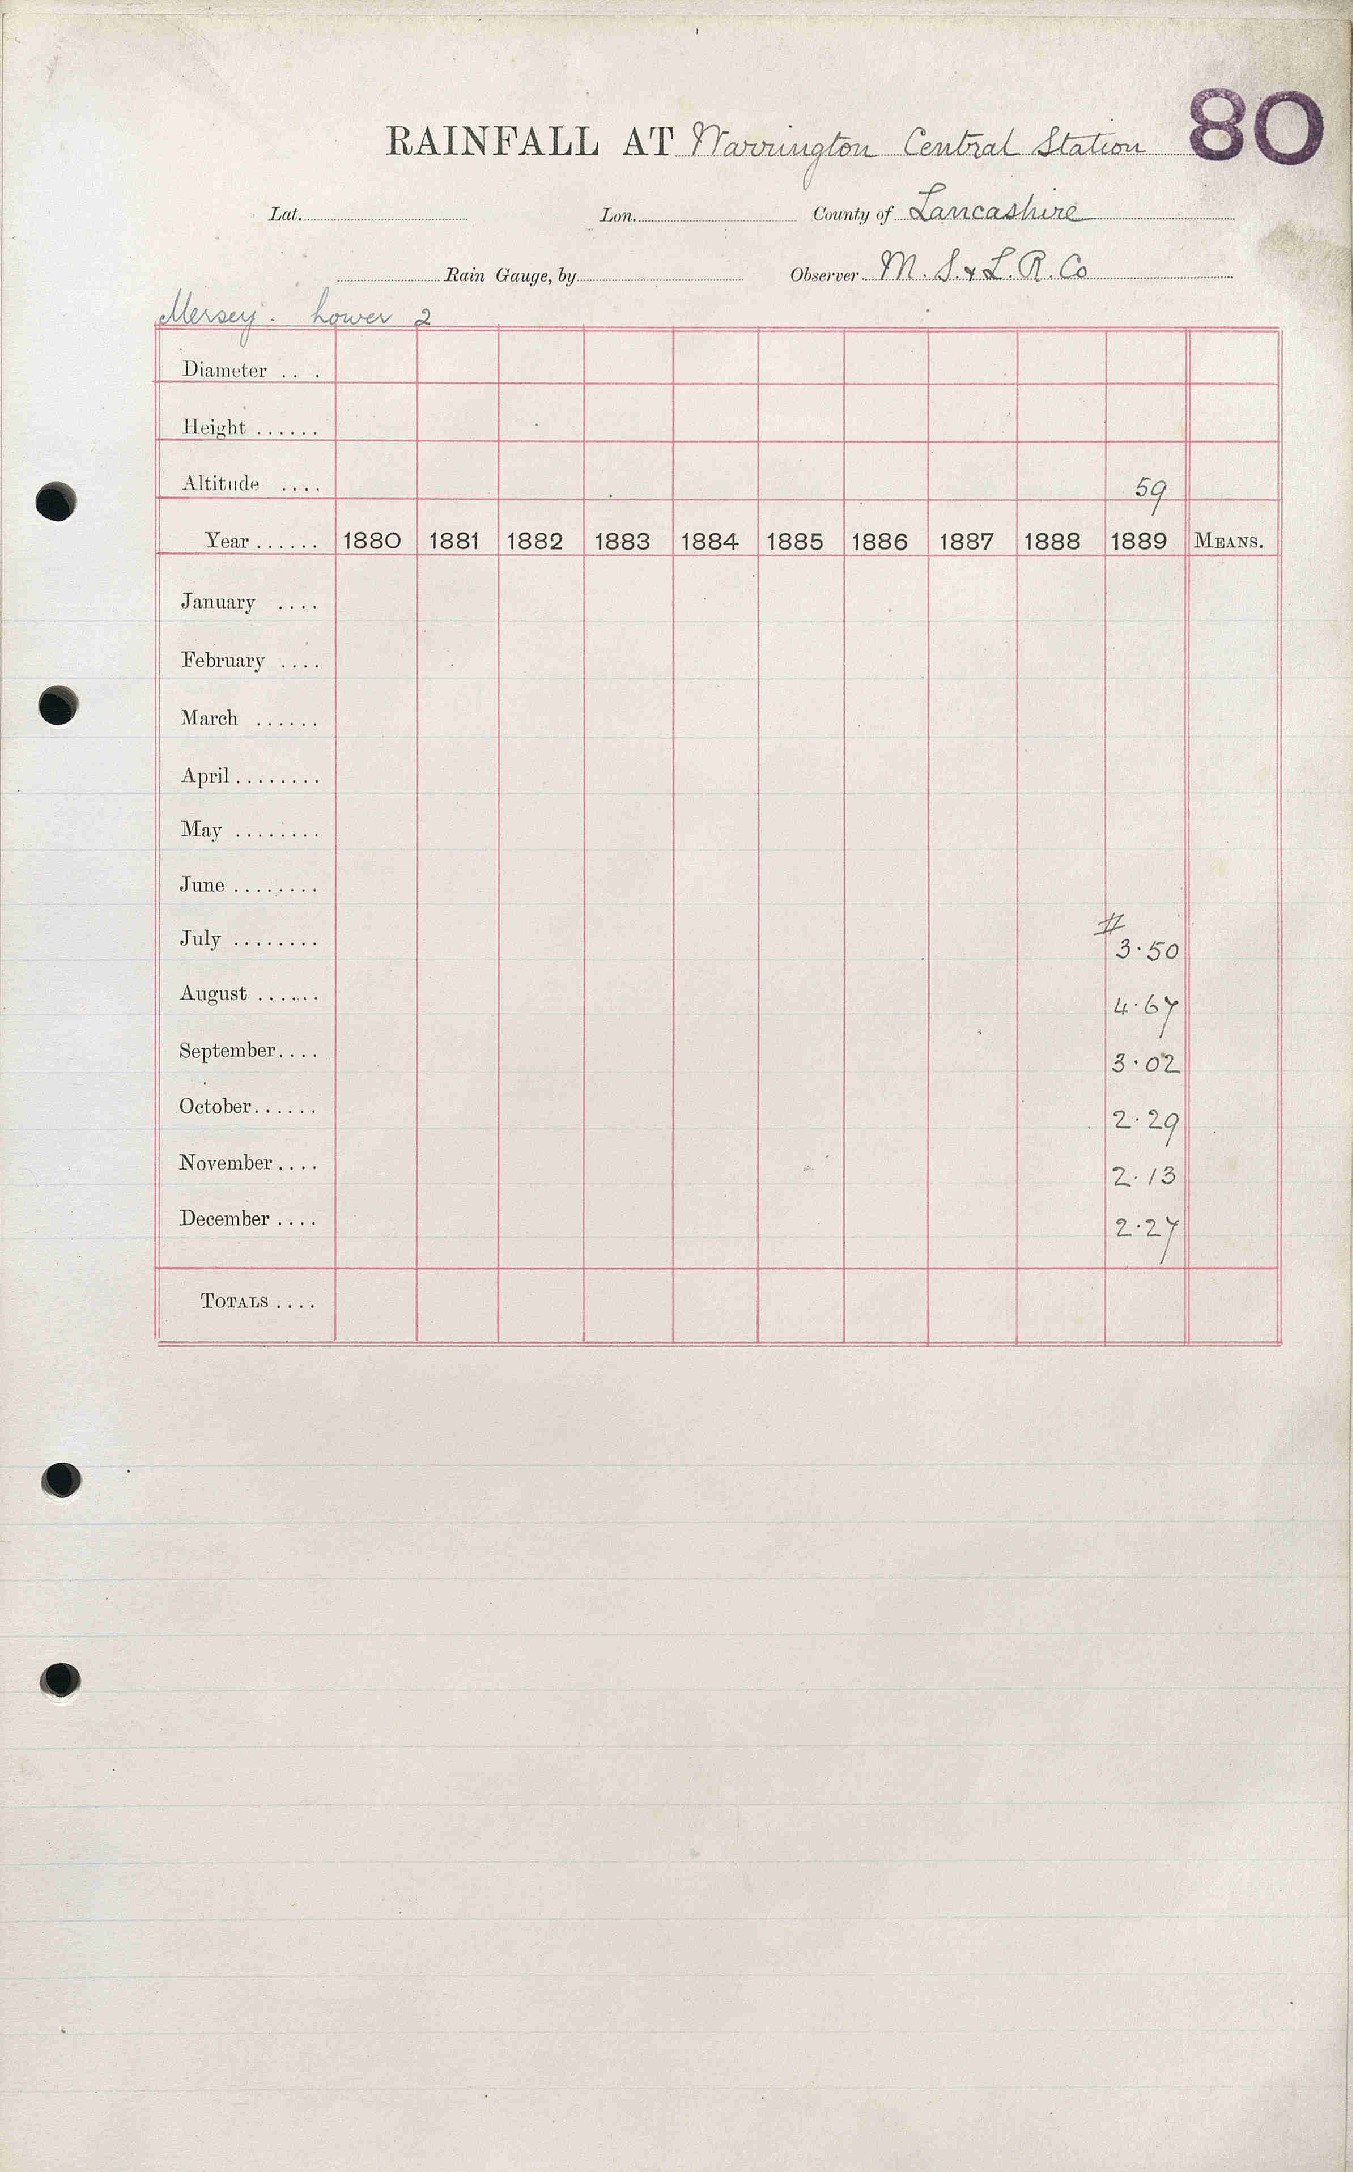 80
RAINFALL AT Warrington Central Station
Lat. Lon. County of Lancashire
Rain Gauge, by Observer M. S. & L. R. Co
Mersey. Lower 2
Diameter . . .
Height ......
Altitude .... 59
Year ...... 1880 1881 1882 1883 1884 1885 1886 1887 1888 1889 MEANS.
January ....
February ....
March ......
April ........
May ........
June ........
July ........ # 3·50
August ...... 4·67
September.... 3·02
October...... 2·29
November .... 2·13
December .... 2·27
TOTALS ....